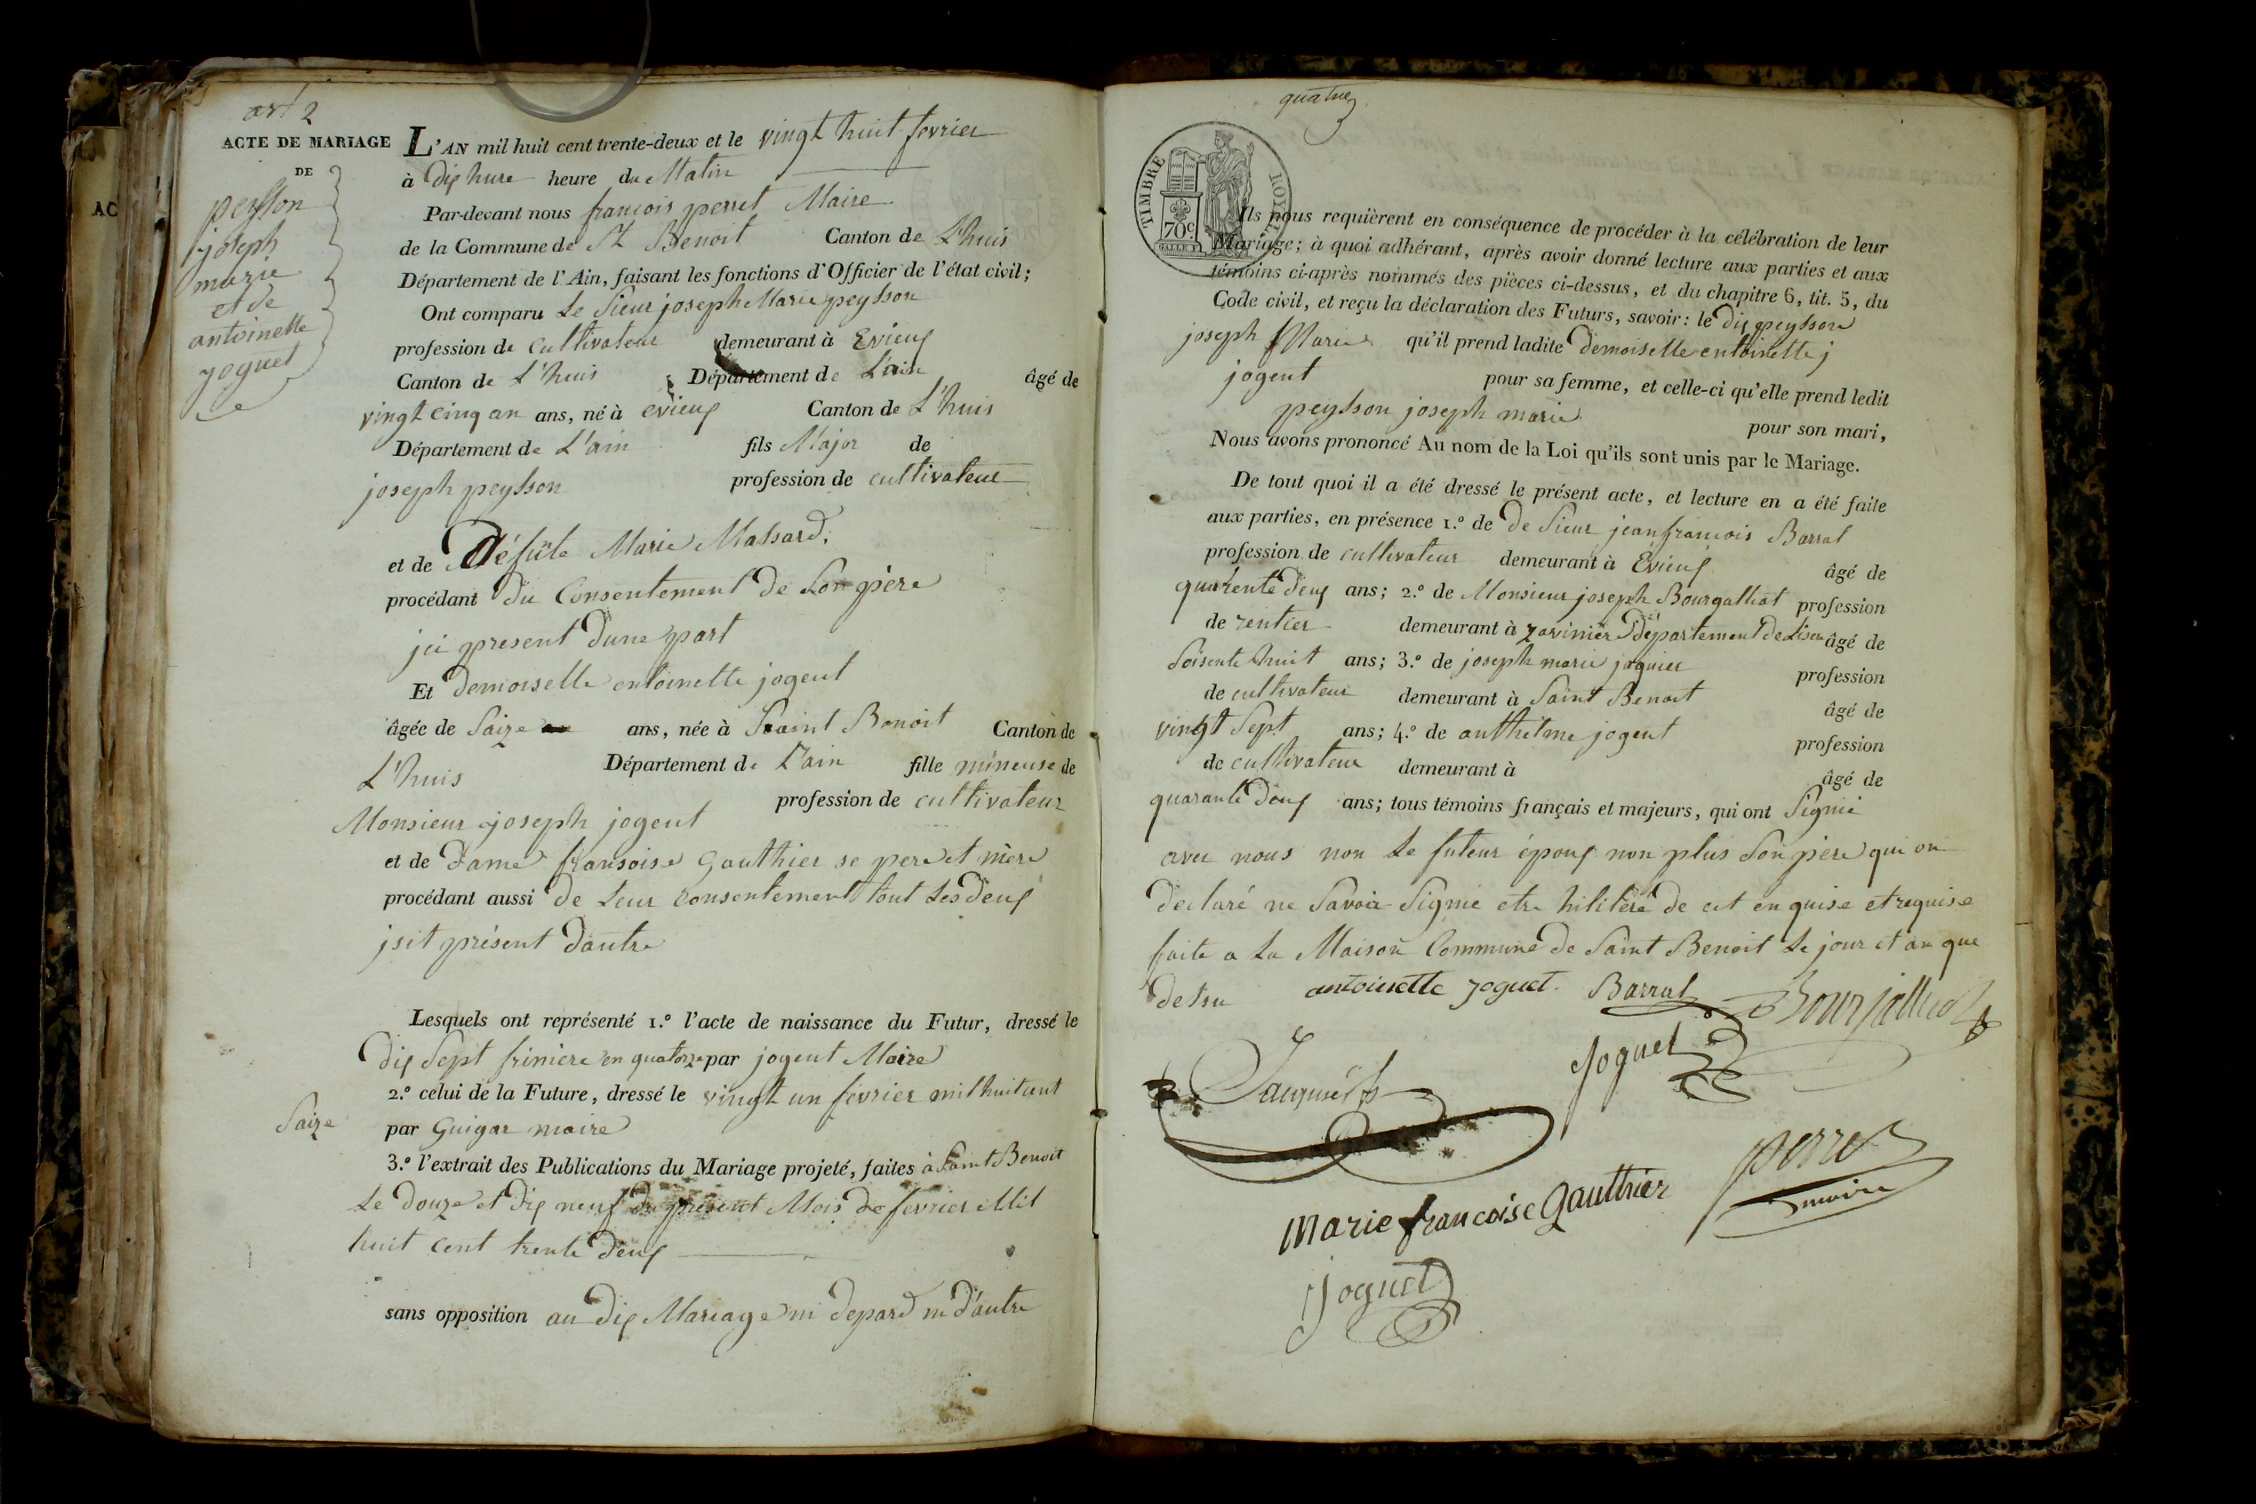 art 2
ACTE DE MARIAGE
DE
peysson
joseph
marie
et de
antoinette
joguet
L'AN mil huit cent trente-deux et le vingt huit fevrier
à dix hure heure du Matin
Par-devant nous francois perret Maire
de la Commune de St Benoit Canton de L'huis
Département de l'Ain, faisant les fonctions d'Officier de l'état civil;
Ont comparu Le Sieur joseph Marie peysson
profession de cultivateur demeurant à Evieux
Canton de L'huis Département de L'ain âgé de
vingt cinq an ans, né à evieux Canton de L'huis
Département de L'ain fils Major de
joseph peysson profession de cultivateur
et de Marie Massard,
procédant du Consentement de Son père
jci present dune part
Et demoiselle entoinette jogent
âgée de Saize ans, née à Saint Benoit Canton de
L'huis Département de L'ain fille mineuse de
Monsieur joseph jogent profession de cultivateur
et de Dame fransoise Gauthier se pere et mère
procédant aussi de Leur consentement tout Les deux
jsit présent dautre
Lesquels ont représenté 1.º l'acte de naissance du Futur, dressé le
dix Sept frimere en quatorze par jogent Maire
2.º celui de la Future, dressé le vingt un fevrier mil huit cent
Saize
par Guigar maire
3.º l'extrait des Publications du Mariage projeté, faites à Saint Benoit
Le douze et dix neuf du present Mois de fevrier Mil
huit cent trente deux
sans opposition au dix Mariage ni depard ni d'autre
quatre
TIMBRE ROYAL
70 c.
Ils nous requièrent en conséquence de procéder à la célébration de leur
Mariage; à quoi adhérant, après avoir donné lecture aux parties et aux
témoins ci-après nommés des pièces ci-dessus, et du chapitre 6, tit. 5, du
Code civil, et reçu la déclaration des Futurs, savoir: le dix peysson
joseph Marie qu'il prend ladite demoiselle entoinette j
jogent pour sa femme, et celle-ci qu'elle prend ledit
peysson joseph marie pour son mari,
Nous avons prononcé Au nom de la Loi qu'ils sont unis par le Mariage.
De tout quoi il a été dressé le présent acte, et lecture en a été faite
aux parties, en présence 1.º de de Sieur jean francois Barral
profession de cultivateur demeurant à Evieux âgé de
quarente deux ans; 2.º de Monsieur joseph Bourgalliat profession
de rentier demeurant à département de Liser âgé de
Soisente huit ans; 3.º de joseph marie joguier profession
de cultivateur demeurant à Saint Benoit âgé de
vingt Sept ans; 4.º de anthelme jogent profession
de cultivateur demeurant à âgé de
quarante doux ans; tous témoins français et majeurs, qui ont Signié
avec nous non Le futeur époux non plus Son père qui on
declaré ne Savoir Signié etre hilitéré de cet enquise et requise
faite a La Maison Commune de Saint Benoit Le jour et an que
dessu antoinette joguet Barral
Joguet
Marie francoise Gauthier
perret
maire
Joguet